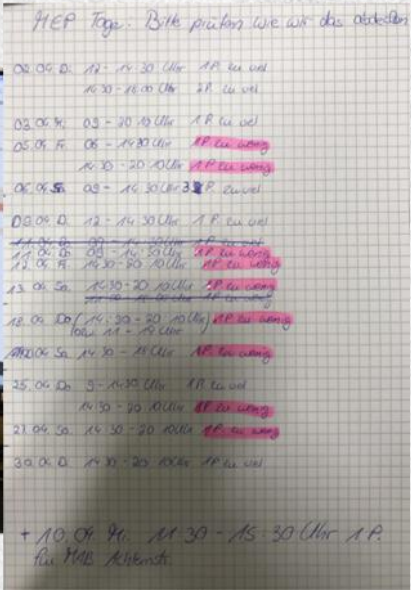 MEP Tage: Bitte prüfen wie wir das abdecken
02.04 D. 12 - 14:30 Uhr 1P. zu viel
14:30 - 18:00 Uhr 2P. zu viel
03.04 M. 09 - 20:10 Uhr 1P. zu viel
05.04 F. 06 - 14:30 Uhr 1P. zu wenig
14:30 - 20:10 Uhr 1P. zu wenig
06.04 S. 09 - 14:30 Uhr 3 P. zu viel
09.04 D. 12 - 14:30 Uhr 1P. zu viel
11.04 Do 09 - 14:30 Uhr 1P. zu viel
11.04 Do 09 - 14:30 Uhr 1P. zu wenig
12.04 F. 14:30 - 20:10 Uhr 1P. zu wenig
13.04 Sa. 14:30 - 20:10 Uhr 1P. zu wenig
1P. zu wenig
18.04 Do (14:30 - 20:10 Uhr) 1P. zu wenig
11 - 19 Uhr
20.04 Sa. 14:30 - 19 Uhr 1P. zu wenig
25.04 Do 9 - 14:30 Uhr 1P. zu viel
14:30 - 20:10 Uhr 1P. zu wenig
27.04 Sa. 14:30 - 20:10 Uhr 1P. zu wenig
30.04 D. 14:30 - 20:10 Uhr 1P. zu viel
+ 10.04. Mi. 11:30 - 15:30 Uhr 1P.
für MAB